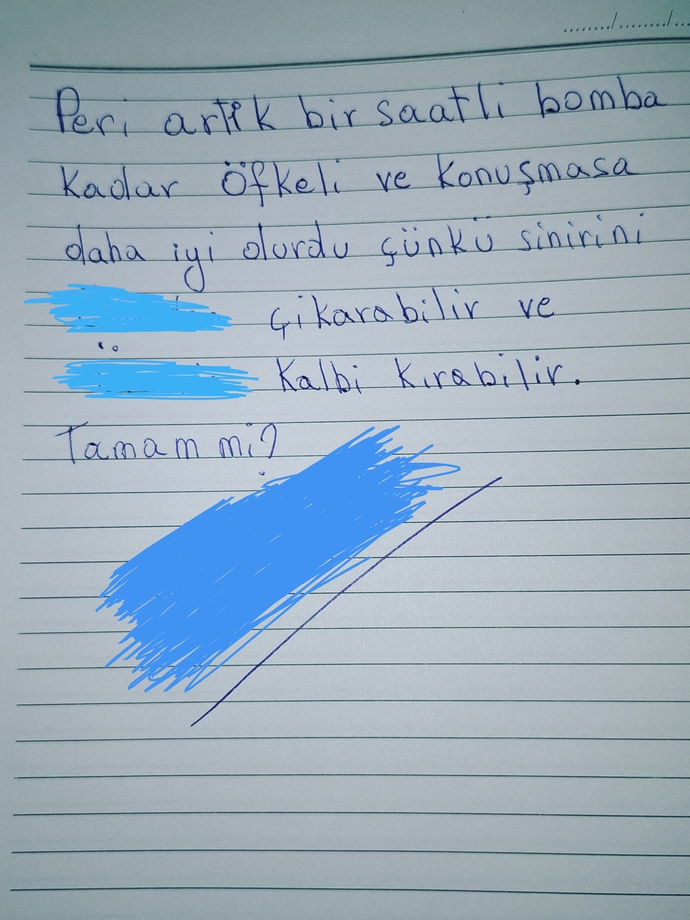 Peri artık bir saatli bomba
kadar öfkeli ve konuşmasa
daha iyi olurdu çünkü sinirini
çikarabilir ve
kalbi kırabilir.
Tamam mi?